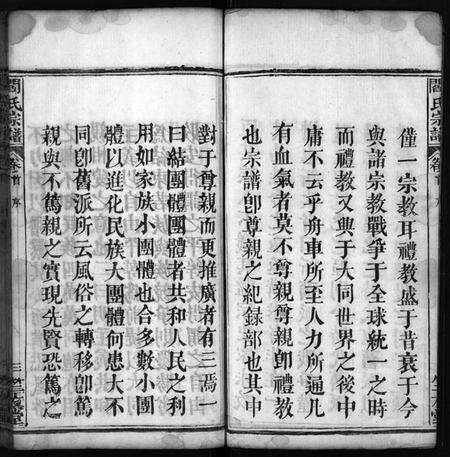 僅一宗教耳禮教盛于昔衰于今
與諸宗教戰爭于全球統一之時
而禮教又興于大同世界之後中
庸不云乎舟車所至人力所通凡
有血氣者莫不尊親尊親卽禮教
也宗譜卽尊親之紀録部也其中
閻氏宗譜
卷首
序
對于尊親而更推廣者有三焉一
曰結團體團體者共和人民之利
用如家族小團體也合多數小團
體以進化民族大團體何患大不
同卽舊派所云風俗之轉移卽篤
親與不篤親之實現先賢恐篤之
閻氏宗譜
卷首
序
三